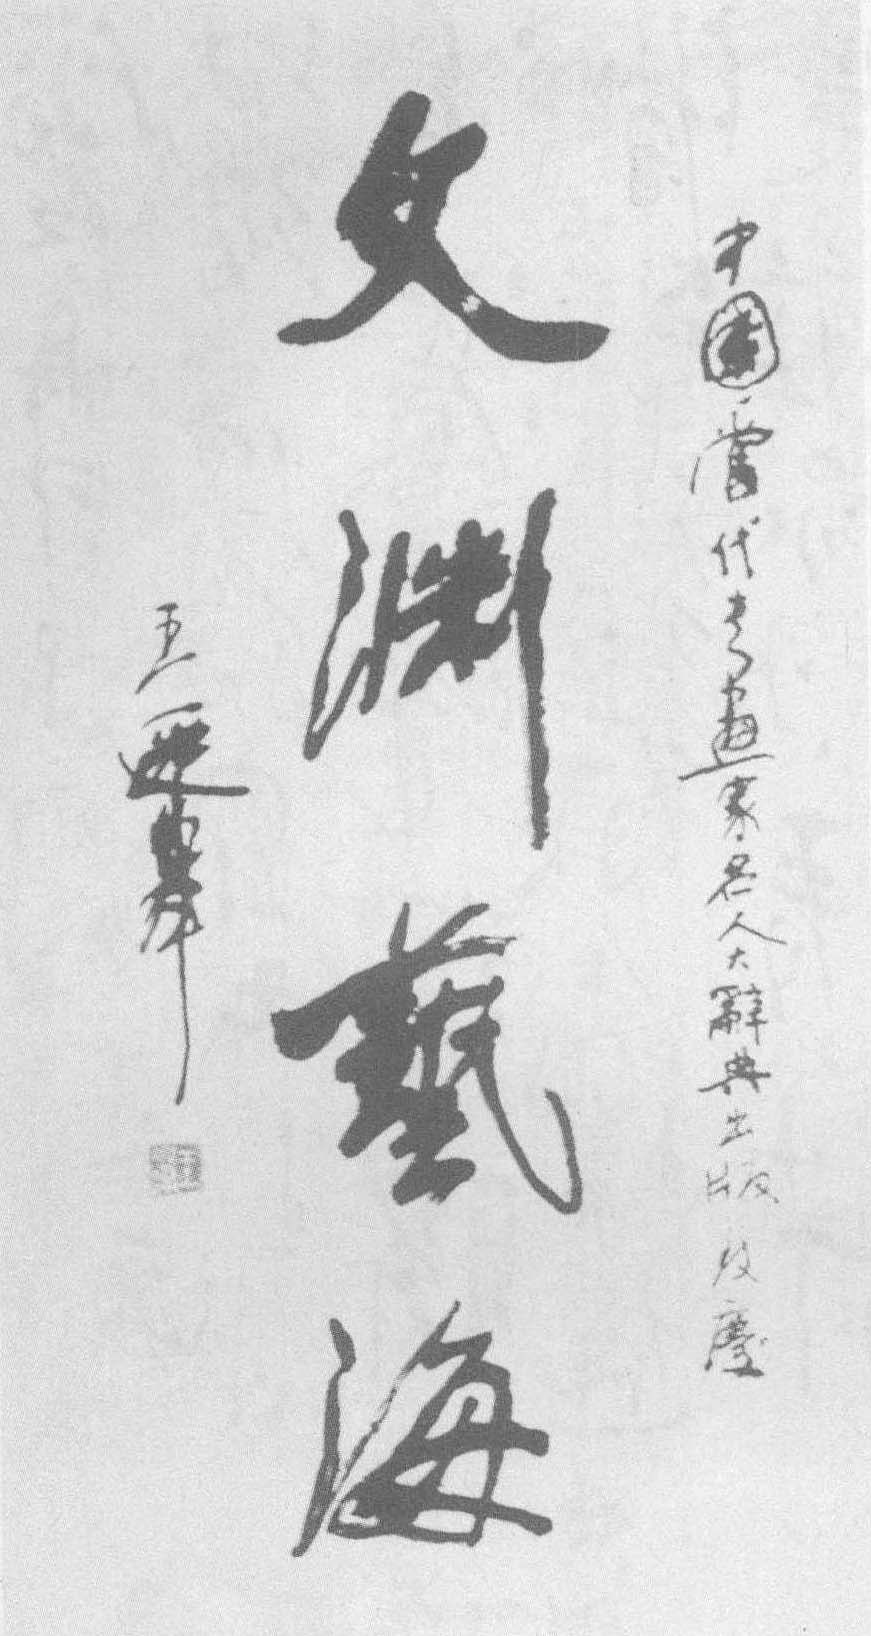 中國當代書畫家名人大辭典出版 致慶
文淵藝海
王遐舉